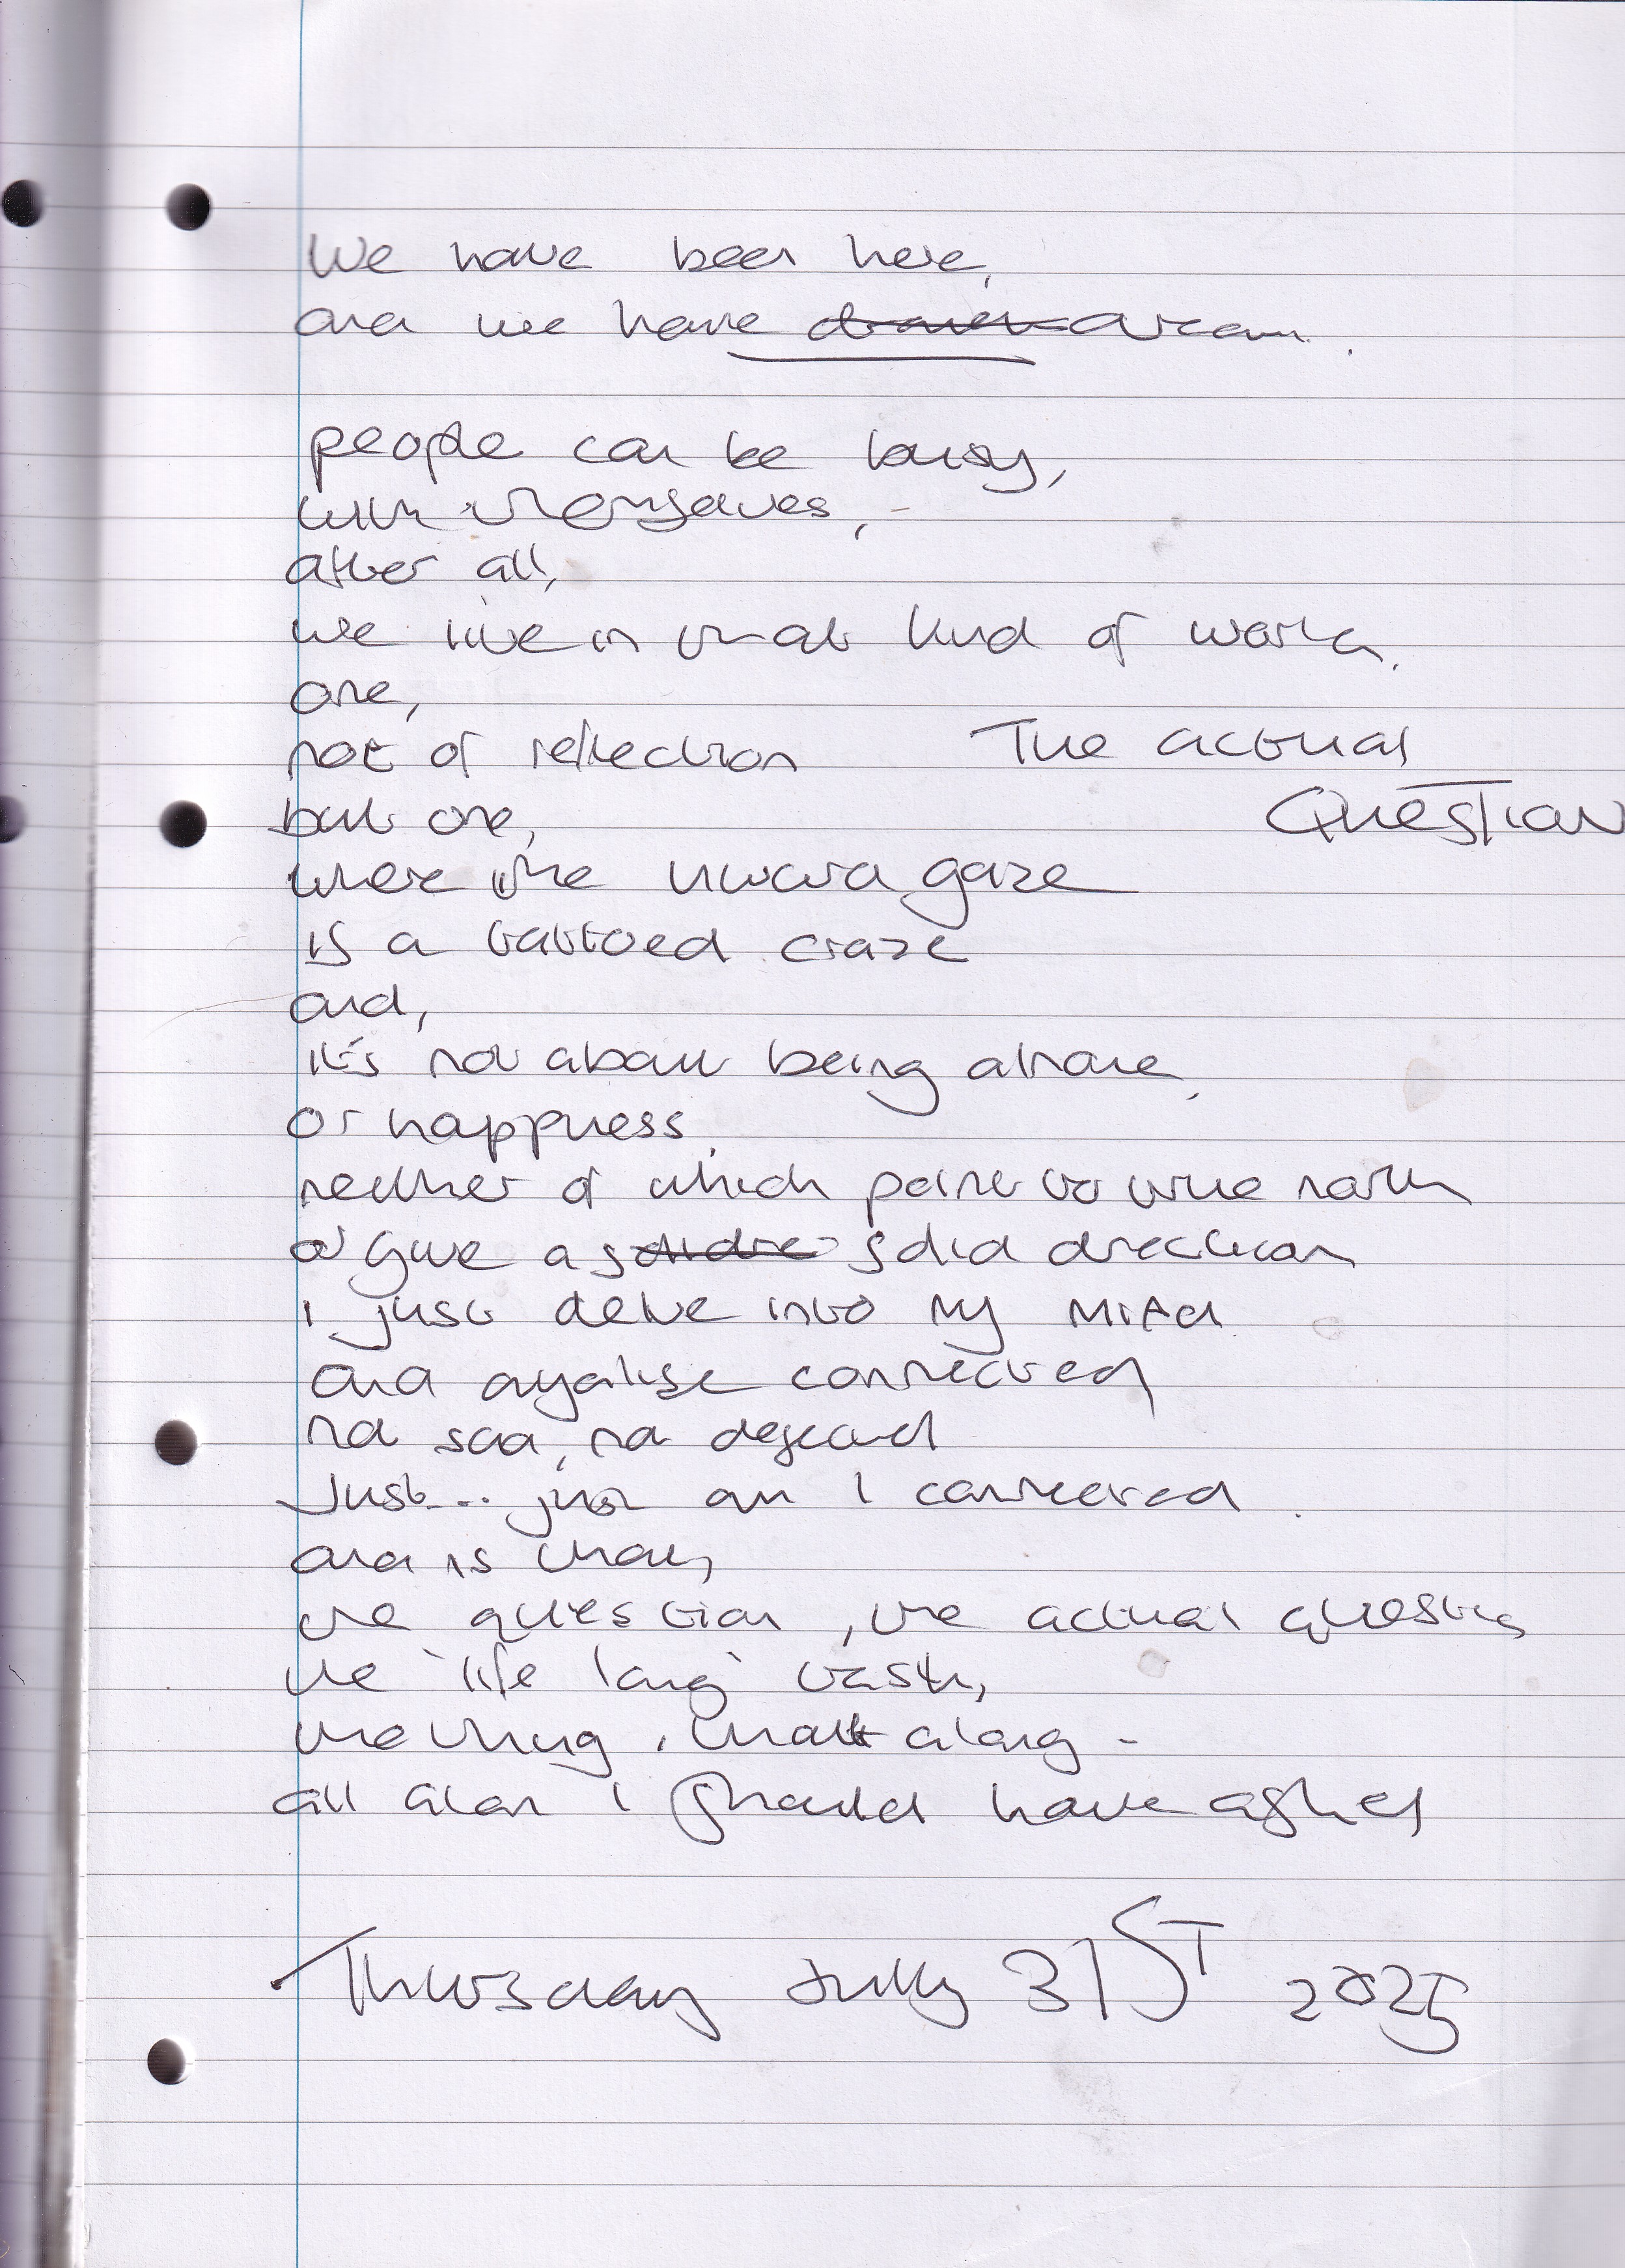 We have been here,
and we have dream.
people can be busy,
with themselves,-
after all,
we live in that kind of world.
one,
not of reflection
The actual
Question
but one,
where the inward gaze
is a tattoed craze
and,
it's not about being alone,
or happiness,
neither of which point to true north
or give a solid direction
I just delve into my mind
and analise connected
not sad, not dejected
Just... just am I connected.
and is that,
the question, the actual question
the 'life long' task,
the thing, that along -
all alon I should have asked
Thursday July 31ST 2025